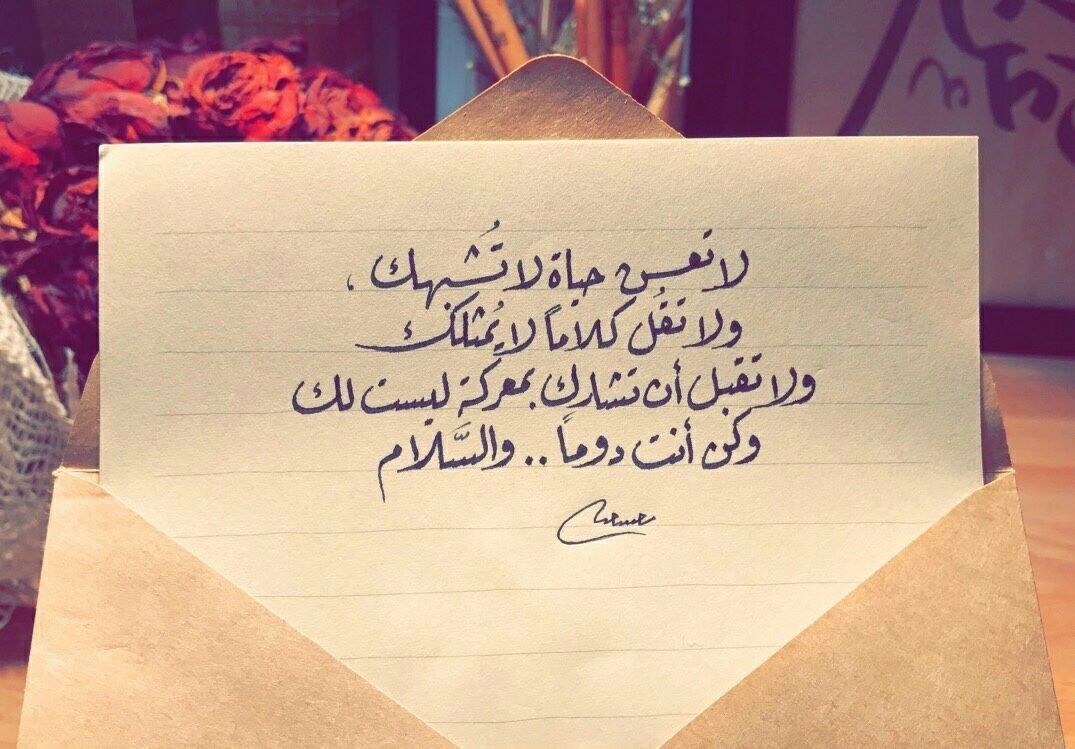 لا تعش حياة لا تُشبهك ،
ولا تقُل كلاماً لا يُمثلك
ولا تقبل أن تشارك بمعركة ليست لك
وكن أنت دوماً .. والسَّلام